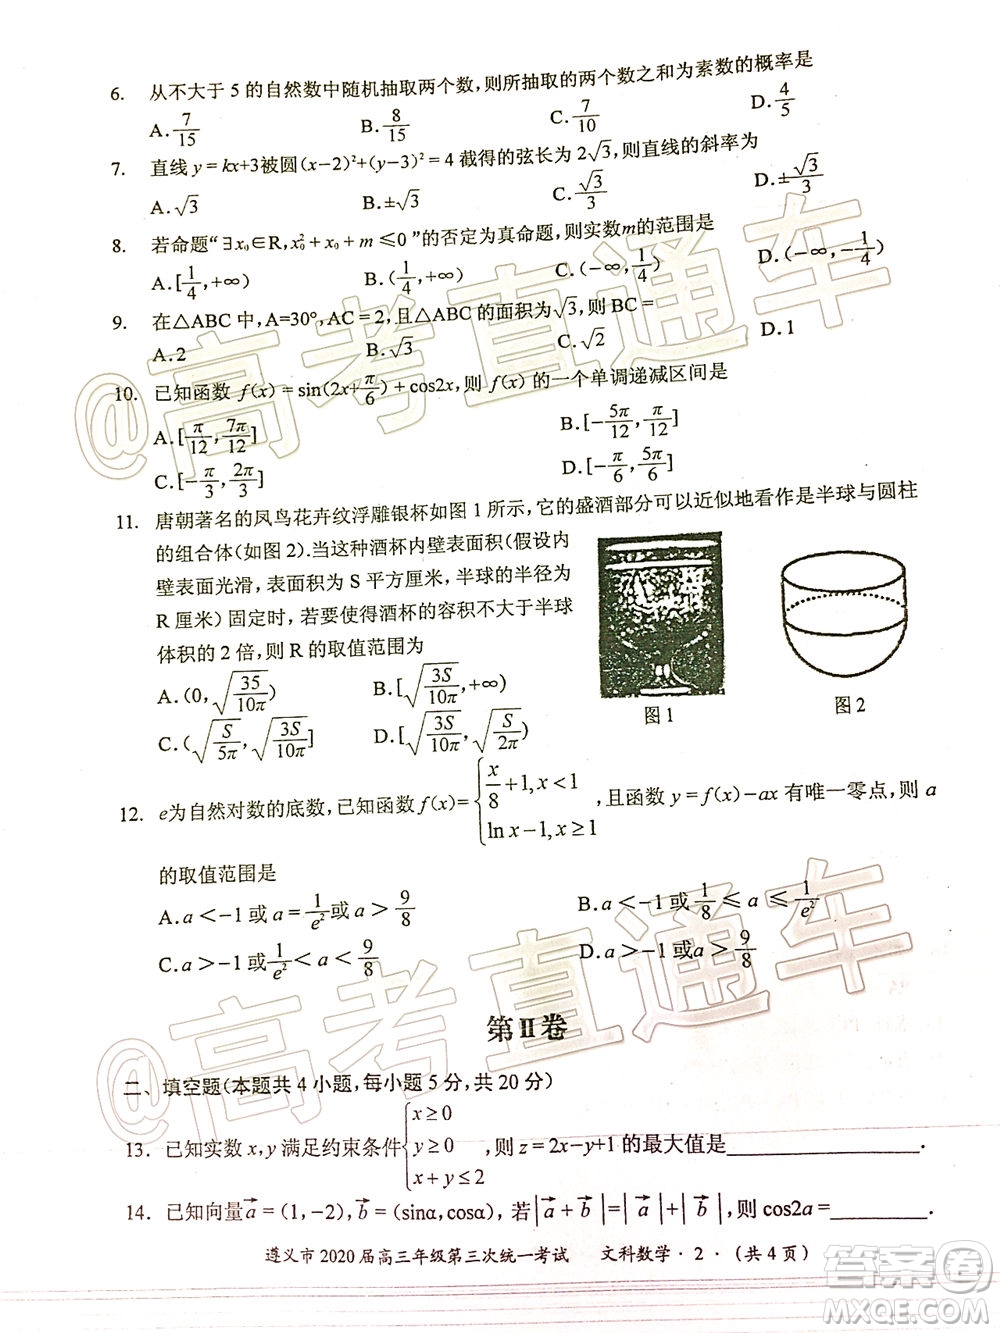 6. 从不大于 5 的自然数中随机抽取两个数,则所抽取的两个数之和为素数的概率是
A. 7/15 B. 8/15 C. 7/10 D. 4/5
7. 直线 y = kx+3被圆(x-2)²+(y-3)² = 4 截得的弦长为 2√3,则直线的斜率为
A.√3 B.±√3 C. √3/3 D.±√3/3
8. 若命题“∃x₀∈R,x₀²+x₀+m≤0”的否定为真命题,则实数m的范围是
A.[1/4,+∞) B.(1/4,+∞) C.(-∞,1/4) D.(-∞,-1/4]
9. 在△ABC 中,A=30°,AC = 2,且△ABC 的面积为√3,则 BC =
A.2 B.√3 C.√2 D.1
10. 已知函数 f(x) = sin(2x+π/6)+cos2x,则 f(x) 的一个单调递减区间是
A.[π/12,7π/12] B.[-5π/12,π/12]
C.[-π/3,2π/3] D.[-π/6,5π/6]
11. 唐朝著名的凤鸟花卉纹浮雕银杯如图 1 所示,它的盛酒部分可以近似地看作是半球与圆柱
的组合体(如图 2).当这种酒杯内壁表面积(假设内
壁表面光滑,表面积为 S 平方厘米,半球的半径为
R 厘米)固定时,若要使得酒杯的容积不大于半球
体积的 2 倍,则 R 的取值范围为
A.(0,√(35/10π)) B.[√(3S/10π),+∞)
C.(√(S/5π),√(3S/10π)] D.[√(3S/10π),√(S/2π))
图 1 图 2
12. e为自然对数的底数,已知函数 f(x)={x/8+1,x<1 ln x-1,x≥1,且函数 y=f(x)-ax 有唯一零点,则 a
的取值范围是
A.a<-1 或 a=1/e² 或 a>9/8 B.a<-1 或 1/8≤a≤1/e²
C.a>-1 或 1/e²<a<9/8 D.a>-1 或a>9/8
第 II 卷
二、填空题(本题共 4 小题,每小题 5 分,共 20 分)
13. 已知实数 x,y 满足约束条件{x≥0 y≥0 x+y≤2,则 z=2x-y+1的最大值是________.
14. 已知向量a→=(1,-2),b→=(sinα,cosα),若|a→+b→|=|a→-b→|,则 cos2a=________.
遵义市 2020 届高三年级第三次统一考试 文科数学 · 2 ·(共 4 页)
@高考直通车
@高考直通车
答案圈
MXQE.COM